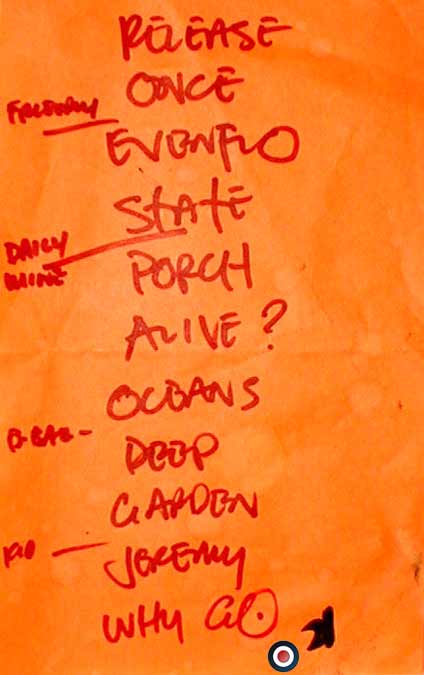 RELEASE
ONCE
EVENFLO
STATE
DAILY
MINE
PORCH
ALIVE ?
OCEANS
DEEP
GARDEN
JEREMY
WHY GO